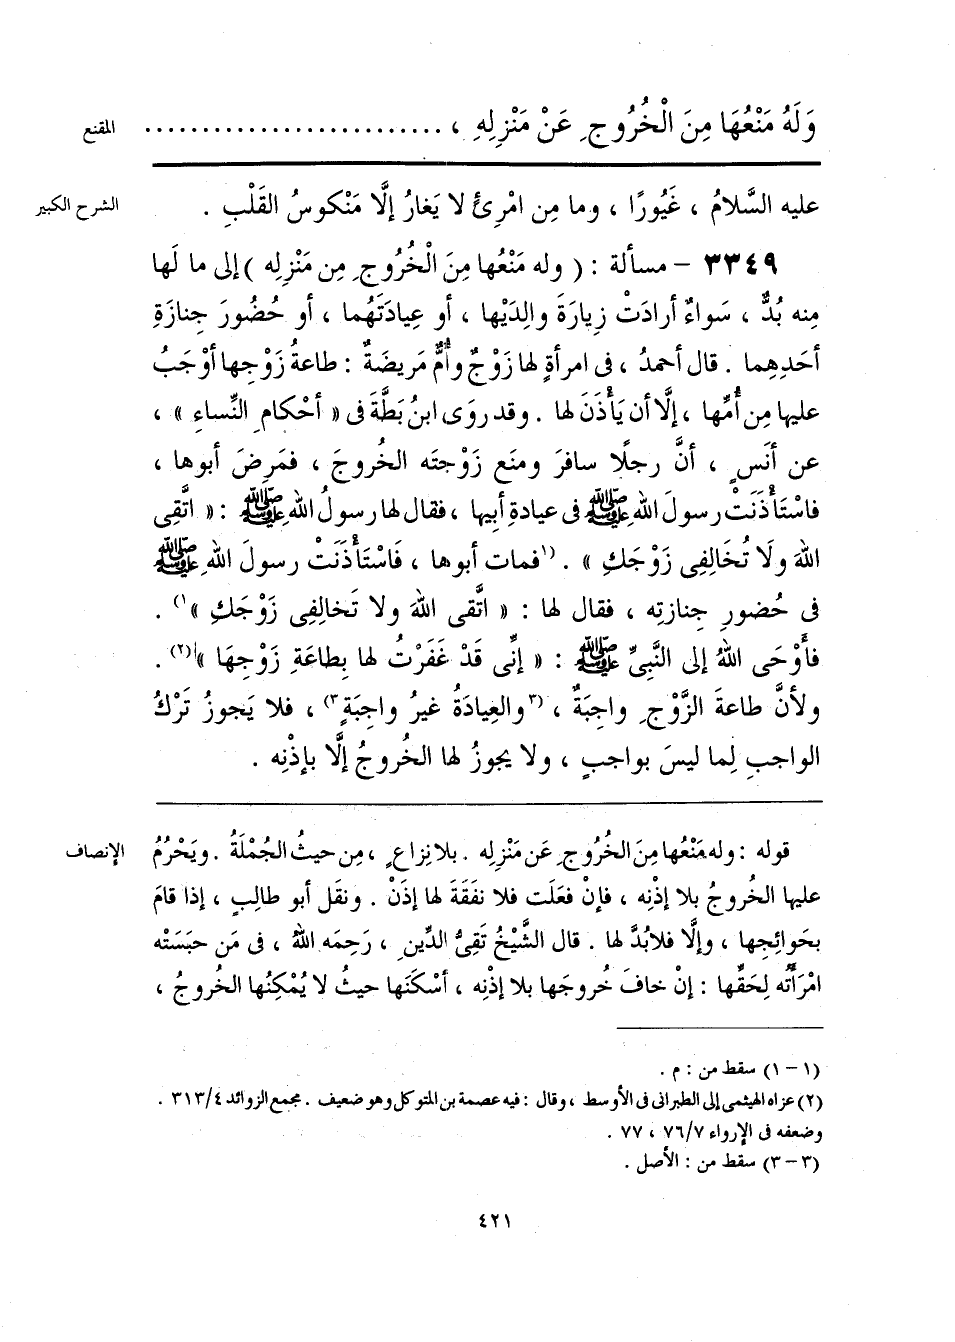 المقنع
وَلَهُ مَنْعُهَا مِنَ الْخُرُوجِ عَنْ مَنْزِلِهِ ، ..........................
الشرح الكبير
عليه السَّلامُ ، غَيُورًا ، وما مِن امْرِئٍ لا يَغارُ إلَّا مَنْكوسُ القَلْبِ .
٣٣٤٩ – مسألة : ( وله مَنْعُها مِنَ الْخُرُوجِ مِن مَنْزِلِه ) إلى ما لَها
مِنه بُدٌّ ، سَواءٌ أرادَتْ زِيارَةَ والِدَيْها ، أو عِيادَتَهُما ، أو حُضُورَ جِنازَةِ
أحَدِهِما . قال أحمدُ ، فى امرأةٍ لها زَوْجٌ وأُمٌّ مَرِيضَةٌ : طاعةُ زَوْجِها أوْجَبُ
عليها مِن أُمِّها ، إلَّا أن يَأْذَنَ لها . وقد روَى ابنُ بَطَّةَ فى « أحْكامِ النِّساءِ » ،
عن أنَسٍ ، أنَّ رجلًا سافرَ ومنَع زَوْجتَه الخُروجَ ، فمَرِضَ أبوها ،
فاسْتَأْذَنَتْ رسولَ اللهِ ﷺ فى عيادةِ أبيها ، فقال لها رسولُ اللهِ ﷺ : « اتَّقِى
اللهَ ولَا تُخَالِفِى زَوْجَكِ » . (١فمات أبوها ، فَاسْتَأْذَنَتْ رسولَ اللهِ ﷺ
فى حُضورِ جِنازتِه ، فقال لها : « اتَّقى اللهَ ولا تَخالِفِى زَوْجَكِ »١) .
فأَوْحَى اللهُ إلى النَّبِىِّ ﷺ : « إنِّى قَدْ غَفَرْتُ لها بِطاعَةِ زَوْجِهَا »(٢) .
ولأنَّ طاعةَ الزَّوْجِ واجِبَةٌ ، (٣والعِيادَةُ غيرُ واجِبَةٍ٣) ، فلا يَجوزُ تَرْكُ
الواجبِ لِما ليسَ بواجبٍ ، ولا يجوزُ لها الخُروجُ إلَّا بإذْنِه .
الإنصاف
قوله : وله مَنْعُها مِنَ الخُرُوجِ عَن مَنْزِلِه . بلا نِزاعٍ ، مِن حيثُ الجُمْلَةُ . ويَحْرُمُ
عليها الخُروجُ بلا إذْنِه ، فإنْ فعَلَت فلا نفَقَةَ لها إذَنْ . ونقَل أبو طالِبٍ ، إذا قامَ
بحَوائجِها ، وإلَّا فلابُدَّ لها . قال الشَّيْخُ تَقِىُّ الدِّينِ ، رَحِمَه اللهُ ، فى مَن حبَسَتْه
امْرَأتُه لِحَقِّها : إنْ خافَ خُروجَها بلا إذْنِه ، أسْكَنَها حيثُ لا يُمْكِنُها الخُروجُ ،
(١ – ١) سقط من : م .
(٢) عزاه الهيثمى إلى الطبرانى فى الأوسط ، وقال : فيه عصمة بن المتوكل وهو ضعيف . مجمع الزوائد ٤/٣١٣ .
وضعفه فى الإرواء ٧/٧٦ ، ٧٧ .
(٣ – ٣) سقط من : الأصل .
٤٢١